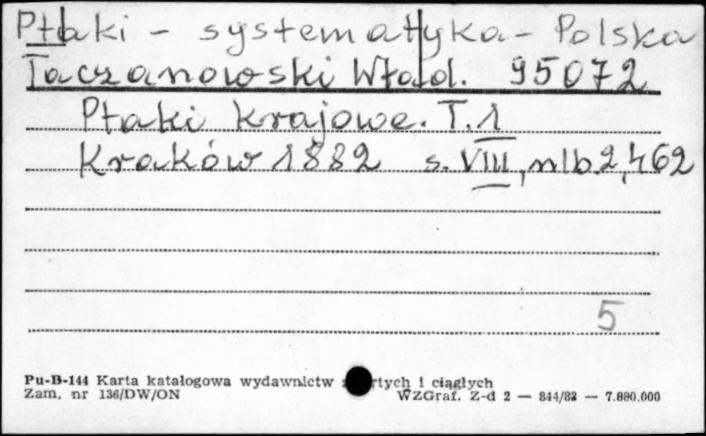 Ptaki - systematyka - Polska
Taczanowski Wład. 95072
Ptaki krajowe. T.1
Kraków 1882 s. VIII, nlb.2, 462
5
Pu-B-144 Karta katalogowa wydawnictw rtych i ciągłych
Zam. nr 136/DW/ON WZGraf. Z-d 2 — 844/82 — 7.880.000